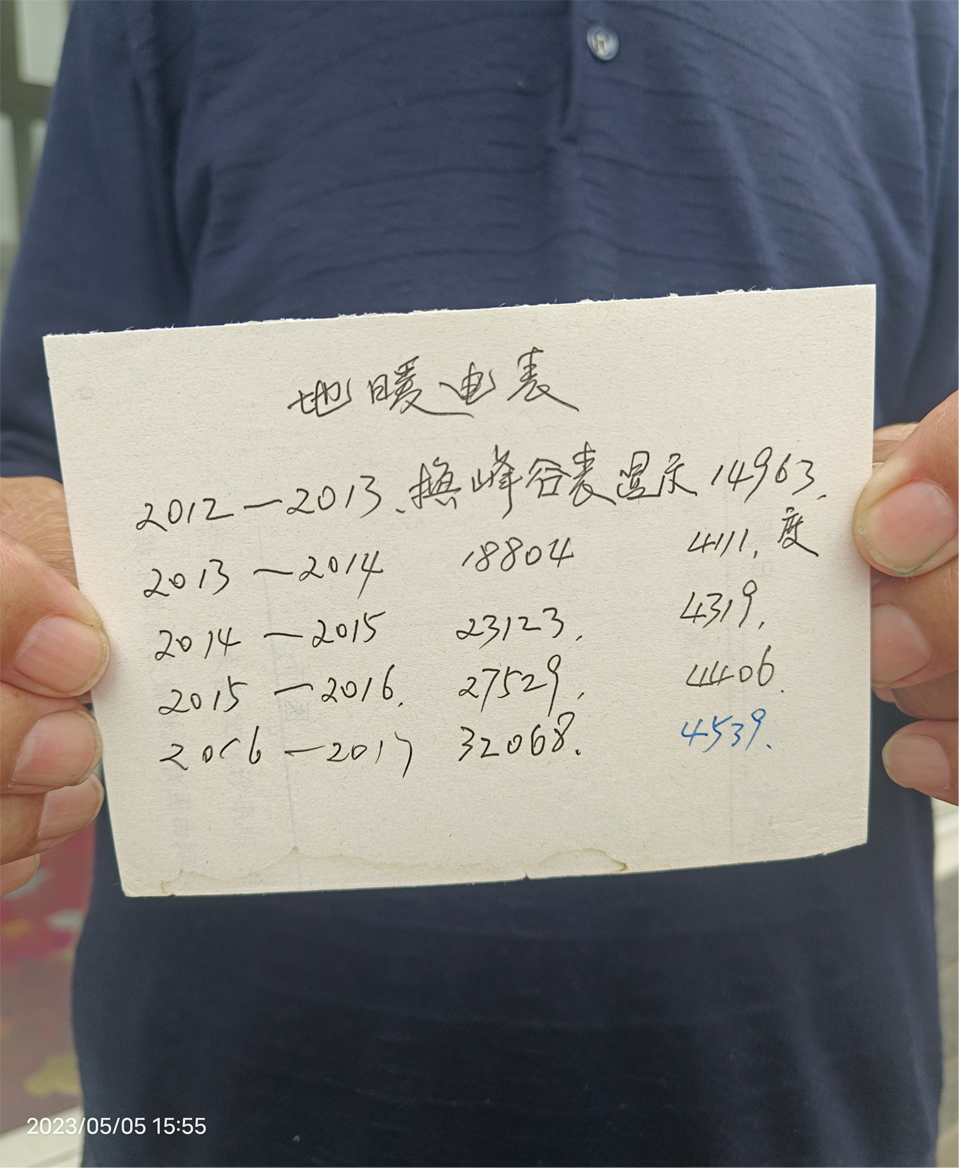 地暖电表
2012—2013、换峰谷表显示14963.
2013—2014 18804 4111.度
2014—2015 23123. 4319.
2015—2016. 27529. 4406.
2016—2017 32068. 4539.
2023/05/05 15:55